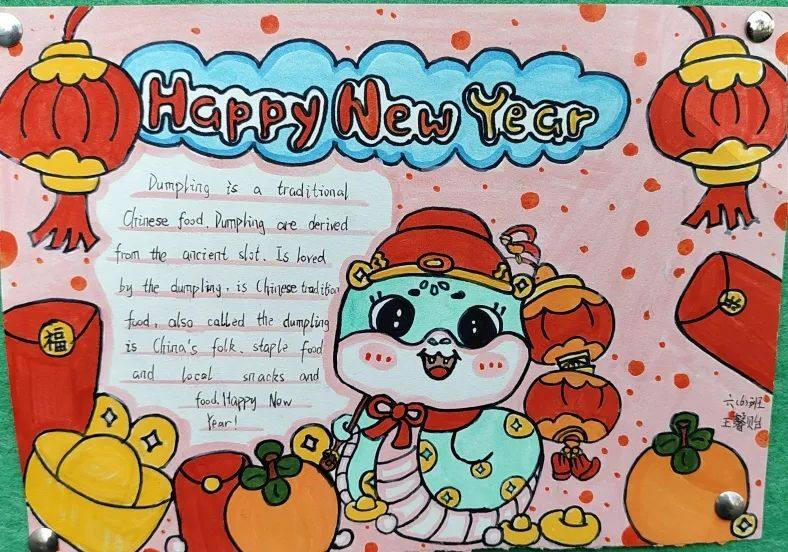 Happy New Year
Dumpling is a traditional
Chinese food. Dumpling are derived
from the ancient slot. Is loved
by the dumpling, is Chinese tradition
food, also called the dumpling
is China's folk. staple food
and local snacks and
food. Happy New
Year!
福
六(6)班
王馨贻